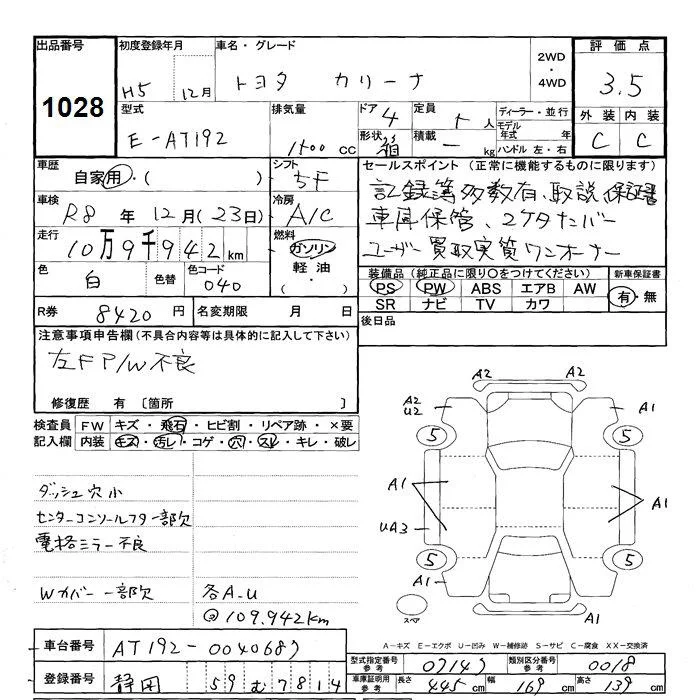 出品番号 初度登録年月 車名・グレード 2WD・4WD 評価点
1028 H5年 12月 トヨタ カリーナ 3.5
型式 排気量 ドア 4 定員 5人 ディーラー・並行 外装 内装
E-AT192 1500CC 形状 箱 積載 - kg モデル年式 年 ハンドル 左・右 C C
車歴 シフト セールスポイント (正常に機能するものに限ります)
自家用・( ) 5F 記録簿多数有、取説、保証書
車検 冷房 車庫保管、2ケタナンバー
R8年12月(23日) A/C ユーザー買取実質ワンオーナー
走行 燃料
10万9千942km ガソリン・軽油・( )
色 色替 色コード 装備品 (純正品に限り○をつけてください) 新車保証書
白 040 PS PW ABS エアB AW 有・無
R券 8420円 名変期限 月 日 SR ナビ TV カワ
注意事項申告欄(不具合内容等は具体的に記入して下さい) 後日品
左F P/W不良
修復歴 有 [箇所 ]
検査員 FW キズ・飛石・ヒビ割・リペア跡・×要
記入欄 内装 キズ・汚レ・コゲ・穴・スレ・キレ・破レ
ダッシュ穴小
センターコンソールフタ一部欠
電格ミラー不良
Wカバー一部欠 各A.U
@109.942km
A2 A2
A2 U2 A1
5 5
A1 A1
UA3
5 5
A1 A1
スペア
A2
A-キズ E-エクボ U-凹み W-補修跡 S-サビ C-腐食 XX-交換済
車台番号 AT192-0040687 型式指定番号 参考 07147 類別区分番号 参考 0018
登録番号 静岡 59 む 7814 車庫証明用 参考 長さ 445cm 幅 169cm 高さ 139cm